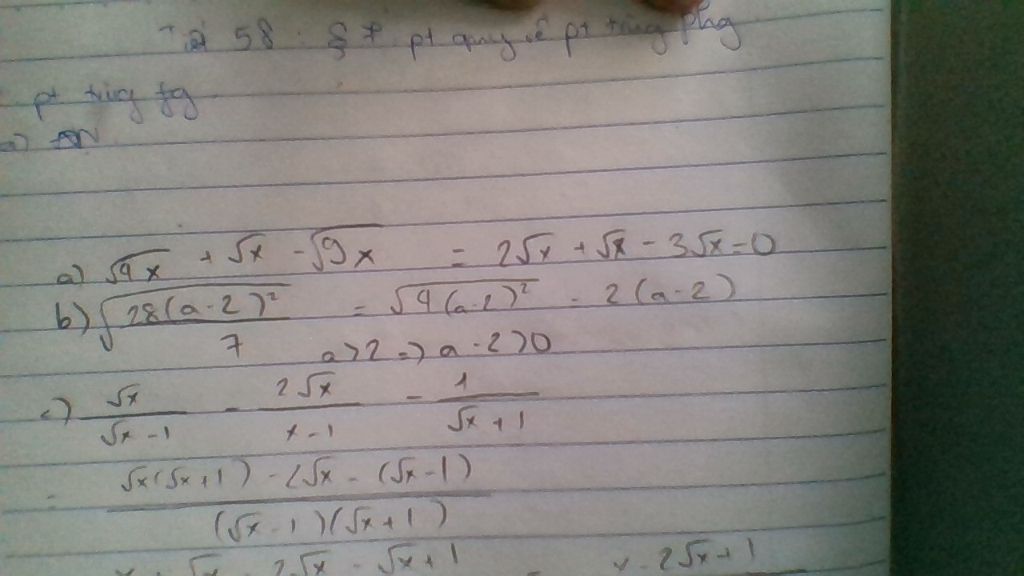 Tiết 58 : § 7 pt quy về pt trùng phg
pt trùng fg
a)
a) √4x + √x - √9x = 2√x + √x - 3√x = 0
b) √(28(a-2)²/7) = √4(a-2)² = 2(a-2)
a>2 => a-2>0
c) √x/(√x-1) - 2√x/(x-1) - 1/(√x+1)
= (√x(√x+1) - 2√x - (√x-1))/((√x-1)(√x+1))
x + √x - 2√x - √x + 1 = x - 2√x + 1